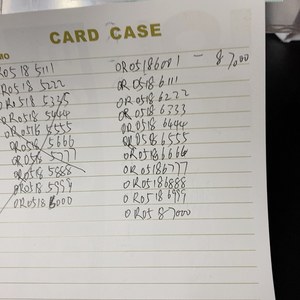 CARD CASE
MO
R0518 5111
R0518 5222
R0518 5335
OR0518 5444
OR0518 5555
OR0518 5666
OR0518 5777
OR0518 5888
OR0518 5999
OR0518 6000
OR05186001 - 87000
OR0518 6111
OR0518 6222
OR0518 6333
OR0518 6444
OR0518 6555
OR0518 6666
OR05186777
OR05186888
OR0518 6999
OR0518 7000